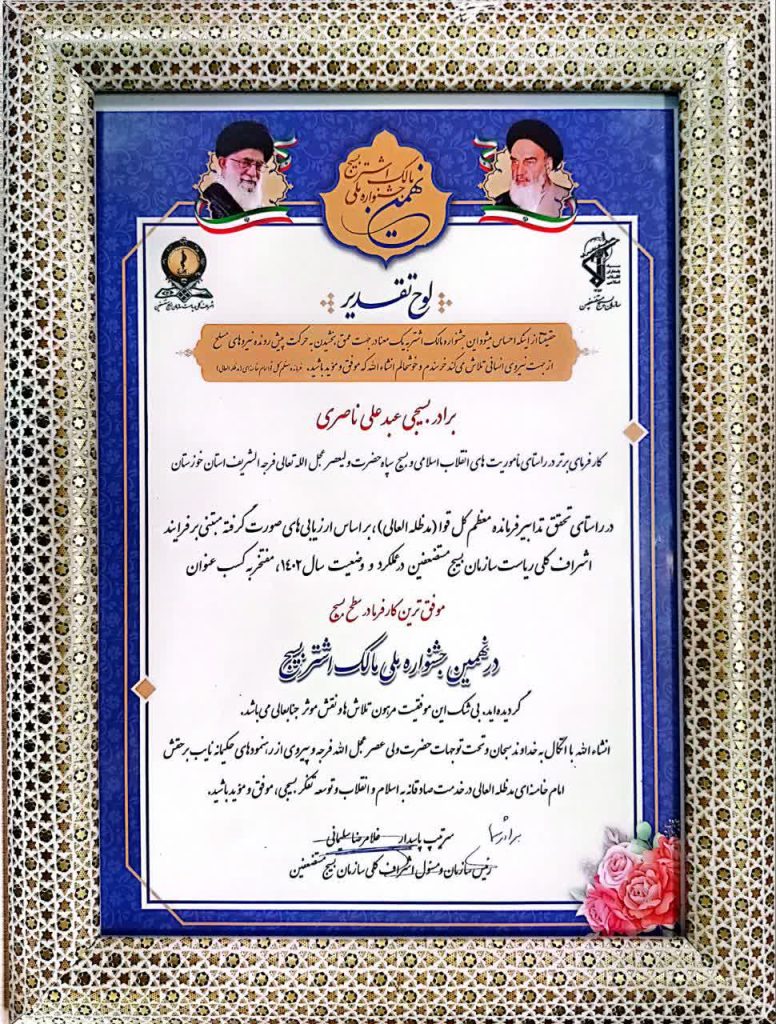 نهمین
جشنواره ملی
مالک اشتر بسیج
سازمان بسیج مستضعفین
لوح تقدیر
حقیقتاً از اینکه احساس میشود این جشنواره مالک اشتر به یک معنا در جهت عمق بخشیدن به حرکت پیش رونده نیروهای مسلح
از جهت نیروی انسانی تلاش می‌کند خرسندم و خوشحالم انشاء الله که موفق و مؤید باشید. فرمانده معظم کل قوا امام خامنه‌ای (مدظله العالی)
برادر بسیجی عبدعلی ناصری
کارفرمای برتر در راستای مأموریت های انقلاب اسلامی و بسیج سپاه حضرت ولیعصر عجل الله تعالی فرجه الشریف استان خوزستان
در راستای تحقق تدابیر فرمانده معظم کل قوا (مدظله العالی)، بر اساس ارزیابی های صورت گرفته مبتنی بر فرایند
اشراف کلی ریاست سازمان بسیج مستضعفین در عملکرد و وضعیت سال ۱۴۰۲، مفتخر به کسب عنوان
موفق ترین کارفرما در سطح بسیج
در نهمین جشنواره ملی مالک اشتر بسیج
گردیده اید. بی شک این موفقیت مرهون تلاش ها و نقش موثر جنابعالی می باشد.
انشاء الله با اتکال به خداوند سبحان و تحت توجهات حضرت ولی عصر عجل الله فرجه و پیروی از رهنمودهای حکیمانه نایب برحقش
امام خامنه ای مدظله العالی در خدمت صادقانه به اسلام و انقلاب و توسعه تفکر بسیجی، موفق و مؤید باشید.
برادر شما
سرتیپ پاسدار غلامرضا سلیمانی
رئیس سازمان و مسئول اشراف کلی سازمان بسیج مستضعفین